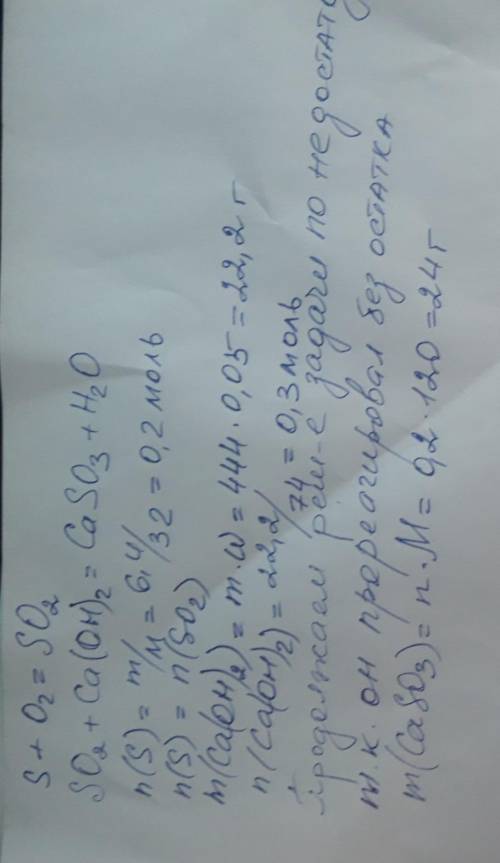 S + O₂ = SO₂
SO₂ + Ca(OH)₂ = CaSO₃ + H₂O
n(S) = m/M = 6,4/32 = 0,2 моль
n(S) = n(SO₂)
m(Ca(OH)₂) = m w = 444 · 0,05 = 22,2 г
n(Ca(OH)₂) = 22,2/74 = 0,3 моль
Продолжаем реш-е задачи по недостат
т.к. он прореагировал без остатка
m(CaSO₃) = n · M = 0,2 · 120 = 24 г